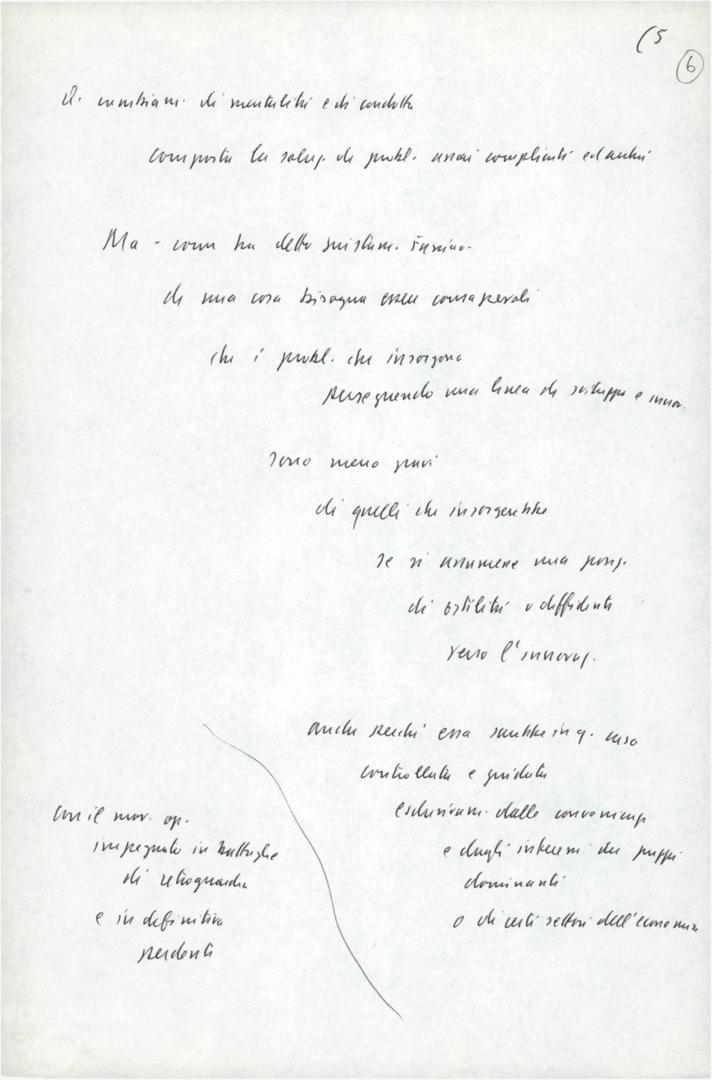 (5
6
cambiam. di mentalità e di condotta
comporta la soluz. di probl. assai complicati ed anche
Ma - come ha detto
di una cosa bisogna essere consapevoli
che i probl. che insorgono
perseguendo una linea di sviluppo e innov.
sono meno gravi
di quelli che insorgerebbe
se si assumesse una posiz.
di ostilità o diffidenti
verso l'innovaz.
anche perché essa sarebbe in q. caso
controllata e guidata
esclusivam. dalle convenienze
e dagli interessi dei gruppi
dominanti
o di certi settori dell'economia
con il mov. op.
impegnato in battaglie
di retroguardia
e in definitiva
perdenti